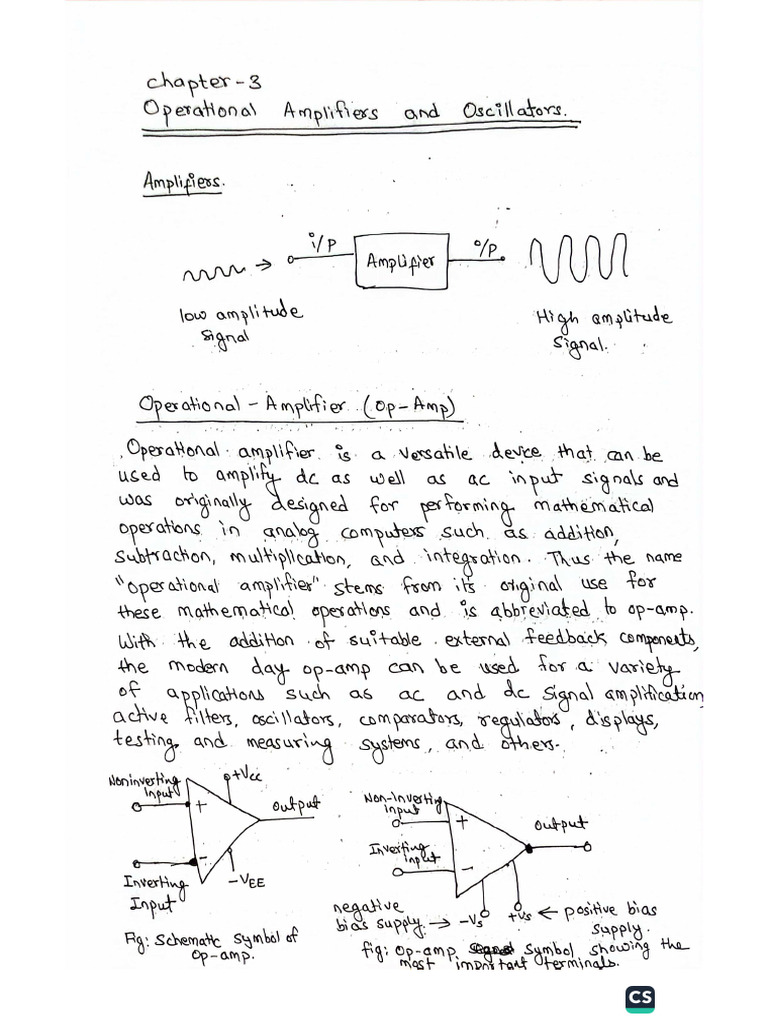 Chapter-3
Operational Amplifiers and Oscillators.
Amplifiers.
i/p
Amplifier
o/p
low amplitude
signal
High amplitude
signal.
Operational-Amplifier (Op-Amp)
Operational amplifier is a versatile device that can be
used to amplify dc as well as ac input signals and
was originally designed for performing mathematical
operations in analog computers such as addition,
subtraction, multiplication, and integration. Thus the name
"operational amplifier" stems from its original use for
these mathematical operations and is abbreviated to op-amp.
With the addition of suitable external feedback components,
the modern day op-amp can be used for a variety
of applications such as ac and dc signal amplification,
active filters, oscillators, comparators, regulators, displays,
testing and measuring systems, and others.
Noninverting
Input
+Vcc
+
output
-
-VEE
Inverting
Input
Fig: Schematic symbol of
op-amp.
Non-Inverting
input
+
output
Inverting
input
-
negative
bias supply. → -Vs
+Vs ← positive bias
supply.
fig: op-amp symbol showing the
most important terminals.
CS